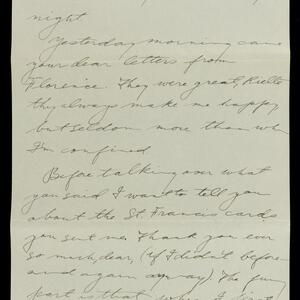 night
Yesterday morning came
your dear letters from
Florence. They were great,
they always make me happy
but seldom more than when
I'm confined
Before talking over what
you said I want to tell you
about the St. Francis cards
you sent me. Thank you ever
so much, dear, (if I didn't before
and again anyway). The funny
part is that